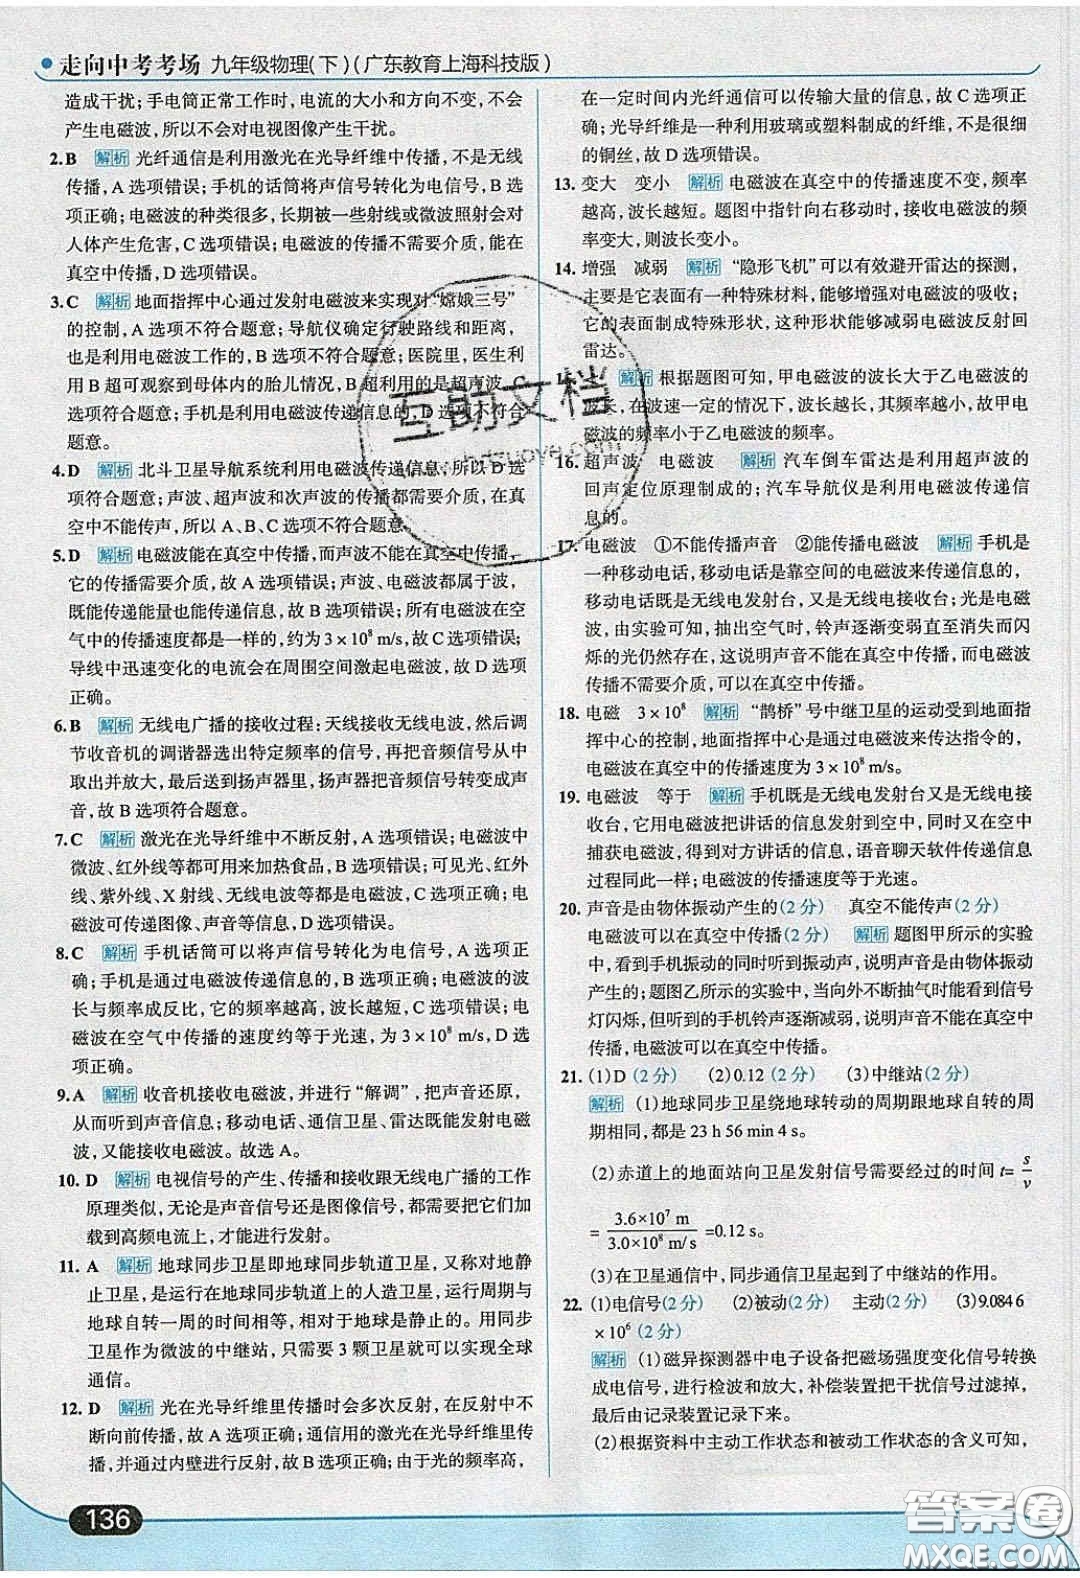 走向中考考场 九年级物理(下)(广东教育上海科技版)
造成干扰;手电筒正常工作时,电流的大小和方向不变,不会
产生电磁波,所以不会对电视图像产生干扰。
2.B 解析 光纤通信是利用激光在光导纤维中传播,不是无线
传播,A选项错误;手机的话筒将声信号转化为电信号,B选
项正确;电磁波的种类很多,长期被一些射线或微波照射会对
人体产生危害,C选项错误;电磁波的传播不需要介质,能在
真空中传播,D选项错误。
3.C 解析 地面指挥中心通过发射电磁波来实现对“嫦娥三号”
的控制,A选项不符合题意;导航仪确定行驶路线和距离,
也是利用电磁波工作的,B选项不符合题意;医院里,医生利
用B超可观察到母体内的胎儿情况,B超利用的是超声波,
选项符合题意;手机是利用电磁波传递信息的,D选项不符合
题意。
4.D 解析 北斗卫星导航系统利用电磁波传递信息,所以D选
项符合题意;声波、超声波和次声波的传播都需要介质,在真
空中不能传声,所以A、B、C选项不符合题意
5.D 解析 电磁波能在真空中传播,而声波不能在真空中传播,
它的传播需要介质,故A选项错误;声波、电磁波都属于波,
既能传递能量也能传递信息,故B选项错误;所有电磁波在空
气中的传播速度都是一样的,约为3×10⁸ m/s,故C选项错误;
导线中迅速变化的电流会在周围空间激起电磁波,故D选项
正确。
6.B 解析 无线电广播的接收过程:天线接收无线电波,然后调
节收音机的调谐器选出特定频率的信号,再把音频信号从中
取出并放大,最后送到扬声器里,扬声器把音频信号转变成声
音,故B选项符合题意。
7.C 解析 激光在光导纤维中不断反射,A选项错误;电磁波中
微波、红外线等都可用来加热食品,B选项错误;可见光、红外
线、紫外线、X射线、无线电波等都是电磁波,C选项正确;电
磁波可传递图像、声音等信息,D选项错误。
8.C 解析 手机话筒可以将声信号转化为电信号,A选项正
确;手机是通过电磁波传递信息的,B选项正确;电磁波的波
长与频率成反比,它的频率越高,波长越短,C选项错误;电
磁波在空气中传播的速度约等于光速,为3×10⁸ m/s,D选
项正确。
9.A 解析 收音机接收电磁波,并进行“解调”,把声音还原,
从而听到声音信息;移动电话、通信卫星、雷达既能发射电磁
波,又能接收电磁波。故选A。
10. D 解析 电视信号的产生、传播和接收跟无线电广播的工作
原理类似,无论是声音信号还是图像信号,都需要把它们
加载到高频电流上,才能进行发射。
11. A 解析 地球同步卫星即地球同步轨道卫星,又称对地静
止卫星,是运行在地球同步轨道上的人造卫星,运行周期与
地球自转一周的时间相等,相对于地球是静止的。用同步
卫星作为微波的中继站,只需要3颗卫星就可以实现全球
通信。
12. D 解析 光在光导纤维里传播时会多次反射,在反射中不
断向前传播,故A选项正确;通信用的激光在光导纤维里传
播,并通过内壁进行反射,故B选项正确;由于光的频率高,
在一定时间内光纤通信可以传输大量的信息,故C选项正
确;光导纤维是利用玻璃或塑料制成的纤维,不是很细
的铜丝,故D选项错误。
13. 变大 变小 解析 电磁波在真空中的传播速度不变,频率
越高,波长越短。题图中指针向右移动时,接收电磁波的频
率变大,则波长变小。
14. 增强 减弱 解析 “隐形飞机”可以有效避开雷达的探测,
主要是它表面有一种特殊材料,能够增强对电磁波的吸收;
它的表面制成特殊形状,这种形状能够减弱电磁波反射回
雷达。
解析 根据题图可知,甲电磁波的波长大于乙电磁波的
波长,在波速一定的情况下,波长越长,其频率越小,故甲电
磁波的频率小于乙电磁波的频率。
16. 超声波 电磁波 解析 汽车倒车雷达是利用超声波的
回声定位原理制成的;汽车导航仪是利用电磁波传递信
息的。
17. 电磁波 ①不能传播声音 ②能传播电磁波 解析 手机是
一种移动电话,移动电话是靠空间的电磁波来传递信息的,
移动电话既是无线电发射台,又是无线电接收台;光是电磁
波,由实验可知,抽出空气时,铃声逐渐变弱直至消失而闪
烁的光仍然存在,这说明声音不能在真空中传播,而电磁波
传播不需要介质,可以在真空中传播。
18. 电磁 3×10⁸ 解析 “鹊桥”号中继卫星的运动受到地面指
挥中心的控制,地面指挥中心是通过电磁波来传达指令的,
电磁波在真空中的传播速度为3×10⁸ m/s。
19. 电磁波 等于 解析 手机既是无线电发射台又是无线电接
收台,它用电磁波把讲话的信息发射到空中,同时又在空中
捕获电磁波,得到对方讲话的信息,语音聊天软件传递信息
过程同此一样;电磁波的传播速度等于光速。
20. 声音是由物体振动产生的(2分) 真空不能传声(2分)
电磁波可以在真空中传播(2分) 解析 题图甲所示的实验
中,看到手机振动的同时听到振动声,说明声音是由物体振动
产生的;题图乙所示的实验中,当向外不断抽气时能看到信号
灯闪烁,但听到的手机铃声逐渐减弱,说明声音不能在真空中
传播,电磁波可以在真空中传播。
21. (1)D(2分) (2)0.12(2分) (3)中继站(2分)
解析 (1)地球同步卫星绕地球转动的周期跟地球自转的周
期相同,都是23 h 56 min 4 s。
(2)赤道上的地面站向卫星发射信号需要经过的时间t=s/v
=3.6×10⁷ m/3.0×10⁸ m/s=0.12 s。
(3)在卫星通信中,同步通信卫星起到了中继站的作用。
22. (1)电信号(2分) (2)被动 主动(2分) (3)9.0846
×10⁶(2分)
解析 (1)磁异探测器中电子设备把磁场强度变化信号转换
成电信号,进行检波和放大,补偿装置把干扰信号过滤掉,
最后由记录装置记录下来。
(2)根据资料中主动工作状态和被动工作状态的含义可知,
136
互助文档
答案圈
MXQE.COM